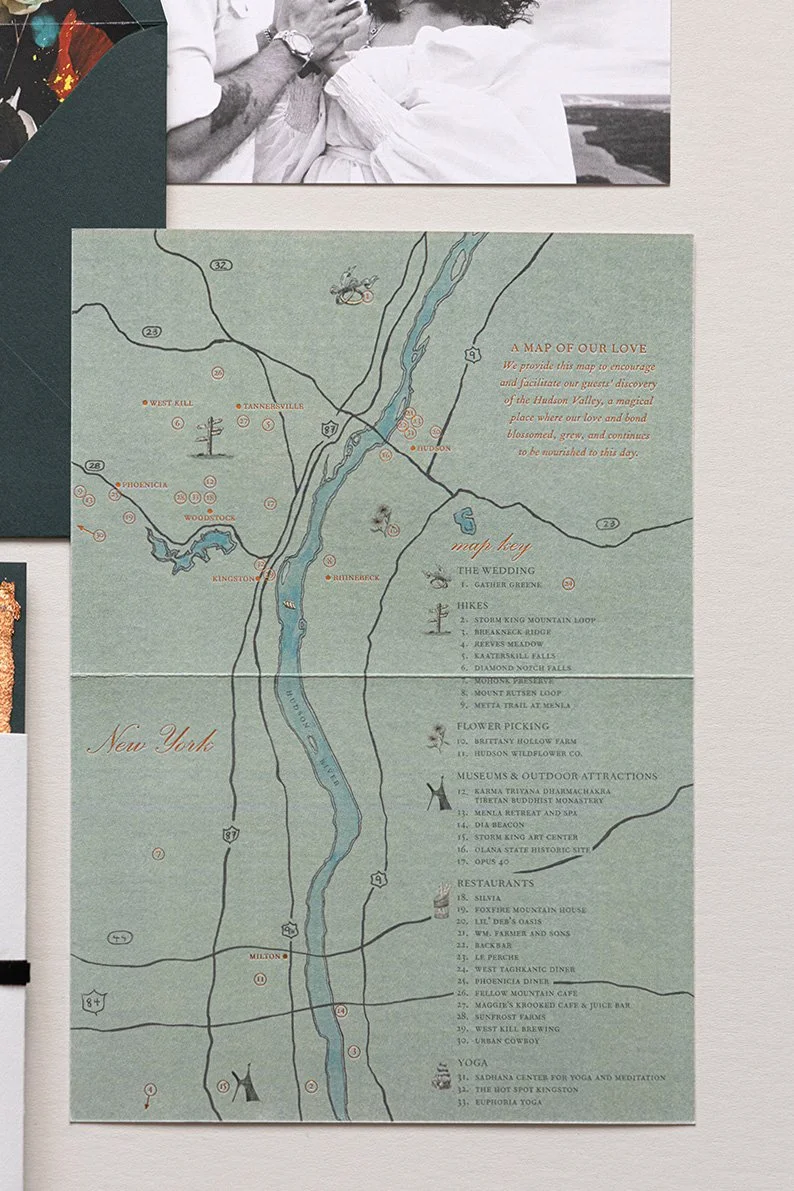 32
1
23
9
A MAP OF OUR LOVE
We provide this map to encourage
and facilitate our guests' discovery
of the Hudson Valley, a magical
place where our love and bond
blossomed, grew, and continues
to be nourished to this day.
26
WEST KILL
TANNERSVILLE
6
27
5
87
HUDSON
16
28
PHOENICIA
9
13
25
12
18
17
19
WOODSTOCK
30
10
23
KINGSTON
8
RHINEBECK
map key
THE WEDDING
1. GATHER GREENE
24
HIKES
2. STORM KING MOUNTAIN LOOP
3. BREAKNECK RIDGE
4. REEVES MEADOW
5. KAATERSKILL FALLS
6. DIAMOND NOTCH FALLS
7. MOHONK PRESERVE
8. MOUNT RUTSEN LOOP
9. METTA TRAIL AT MENLA
HUDSON RIVER
New York
FLOWER PICKING
10. BRITTANY HOLLOW FARM
11. HUDSON WILDFLOWER CO.
MUSEUMS & OUTDOOR ATTRACTIONS
12. KARMA TRIYANA DHARMACHAKRA
TIBETAN BUDDHIST MONASTERY
13. MENLA RETREAT AND SPA
14. DIA BEACON
15. STORM KING ART CENTER
16. OLANA STATE HISTORIC SITE
17. OPUS 40
87
7
9
RESTAURANTS
18. SILVIA
19. FOXFIRE MOUNTAIN HOUSE
20. LIL' DEB'S OASIS
21. WM. FARMER AND SONS
22. BACKBAR
23. LE PERCHE
24. WEST TAGHKANIC DINER
25. PHOENICIA DINER
26. FELLOW MOUNTAIN CAFE
27. MAGGIE'S KROOKED CAFE & JUICE BAR
28. SUNFROST FARMS
29. WEST KILL BREWING
30. URBAN COWBOY
44
9W
MILTON
11
84
14
3
YOGA
31. SADHANA CENTER FOR YOGA AND MEDITATION
32. THE HOT SPOT KINGSTON
33. EUPHORIA YOGA
4
15
2